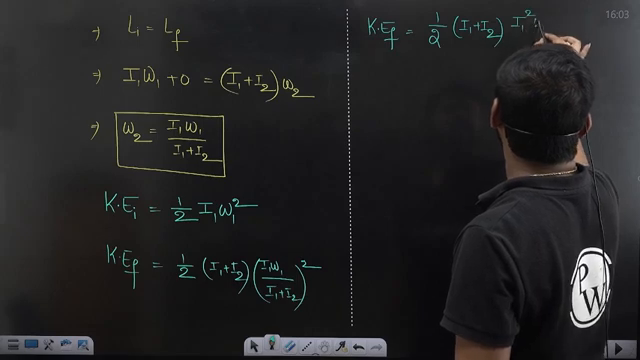 ⇒ L₁ = L_f
⇒ I₁ω₁ + 0 = (I₁+I₂)ω₂
⇒ ω₂ = I₁ω₁ / (I₁+I₂)
K·E_i = 1/2 I₁ω₁²
K·E_f = 1/2 (I₁+I₂) (I₁ω₁ / (I₁+I₂))²
K·E_f = 1/2 (I₁+I₂) I₁²
16:03
PW